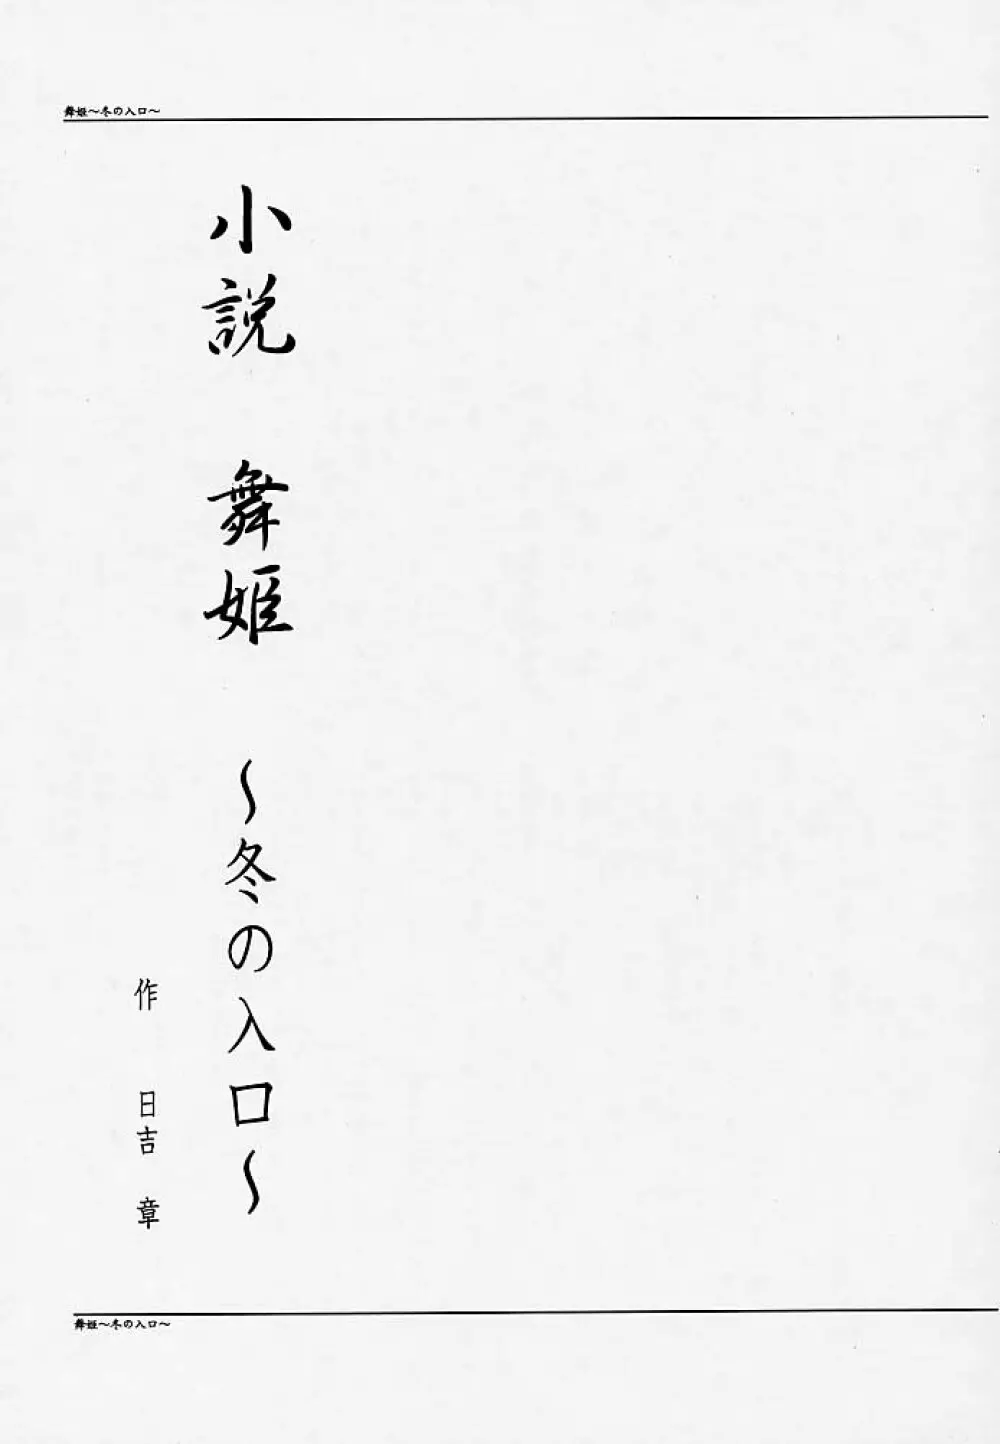 舞姫〜冬の入口〜
小説 舞姫 〜冬の入口〜
作 日吉 章
舞姫〜冬の入口〜